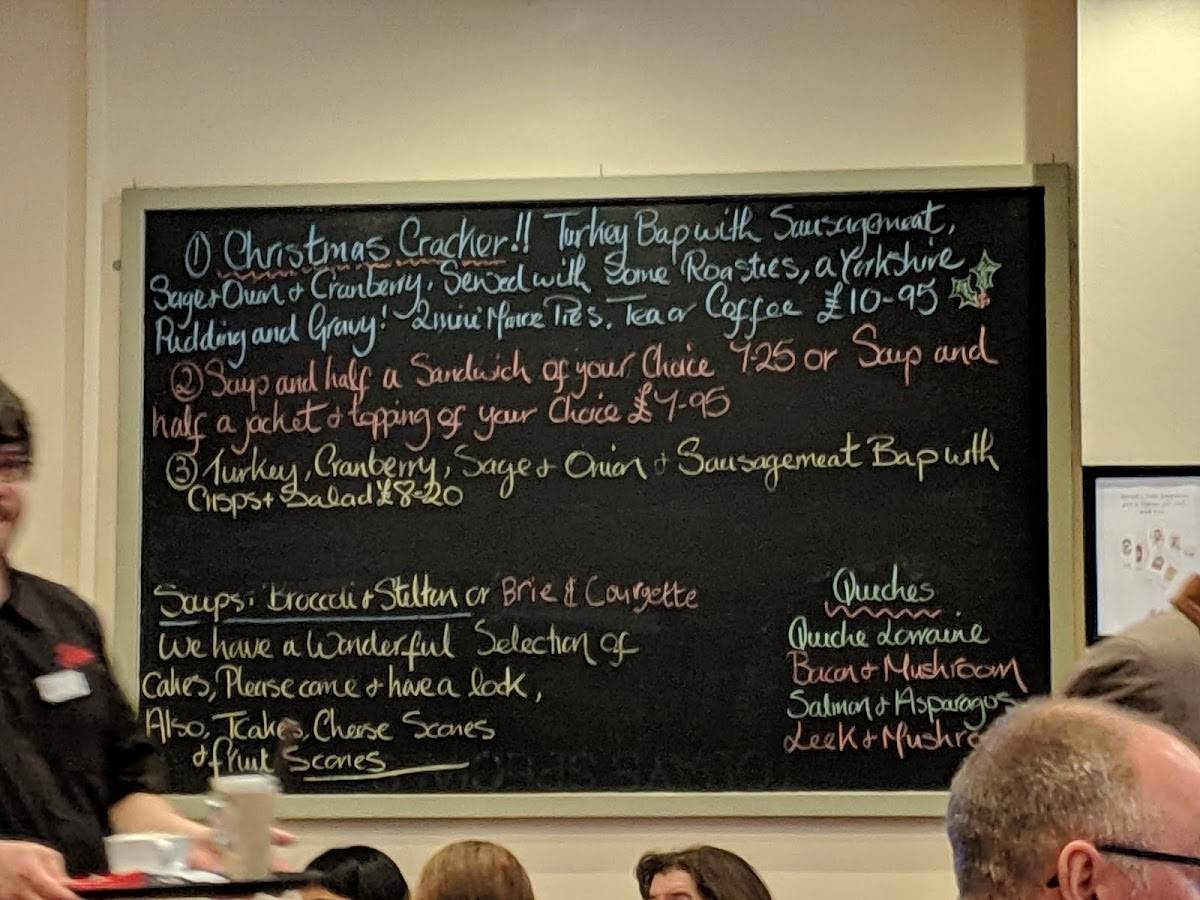 ① Christmas Cracker!! Turkey Bap with Sausagemeat,
Sage + Onion + Cranberry. Served with Some Roasties, a Yorkshire
Pudding and Gravy! 2 mini Mince Pies. Tea or Coffee £10-95
② Soup and half a Sandwich of your Choice 7-25 or Soup and
half a jacket + topping of your Choice £7-95
③ Turkey, Cranberry, Sage + Onion + Sausagemeat Bap with
Crisps + Salad £8-20
Soups: Broccoli + Stilton or Brie & Courgette
We have a Wonderful Selection of
Cakes, Please come + have a look,
Also, Tcakes, Cheese Scones
+ fruit Scones
Quiches
Quiche Lorraine
Bacon + Mushroom
Salmon + Asparagus
Leek + Mushro